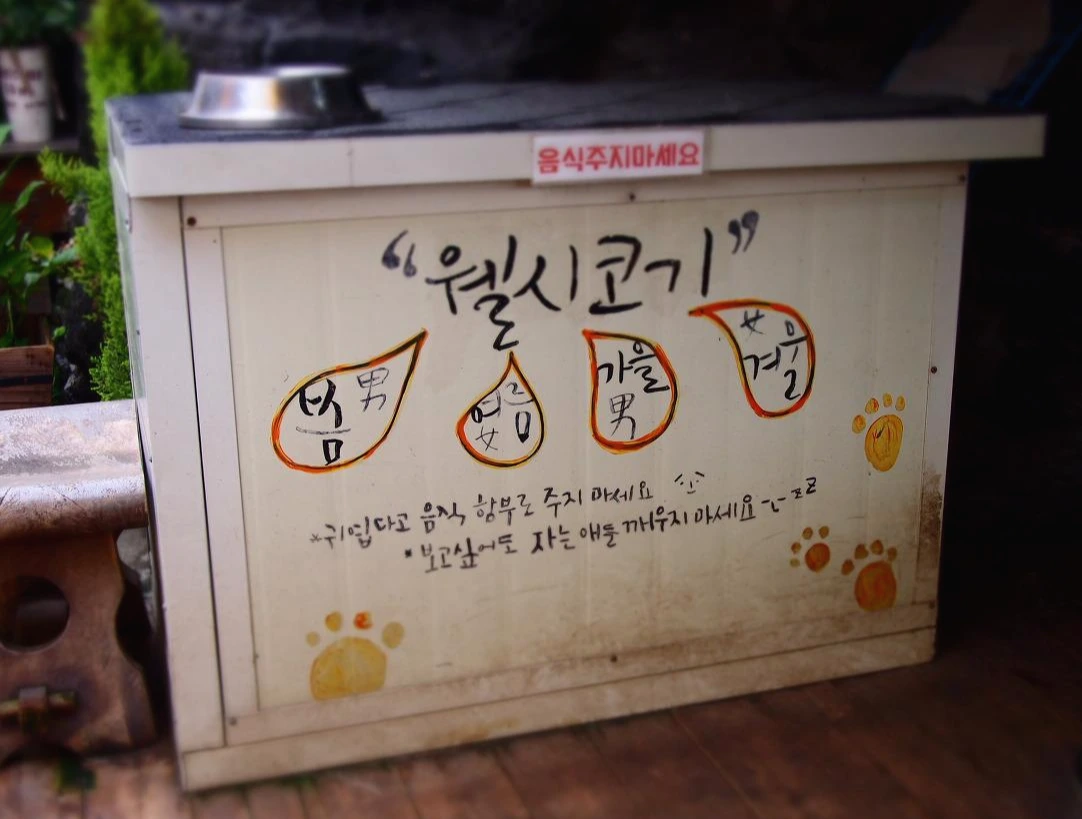 음식주지마세요
“웰시코기”
봄 男
여름 女
가을 男
女 겨울
*귀엽다고 음식 함부로 주지 마세요
* 보고싶어도 자는 애들 깨우지 마세요 -.- zzZ